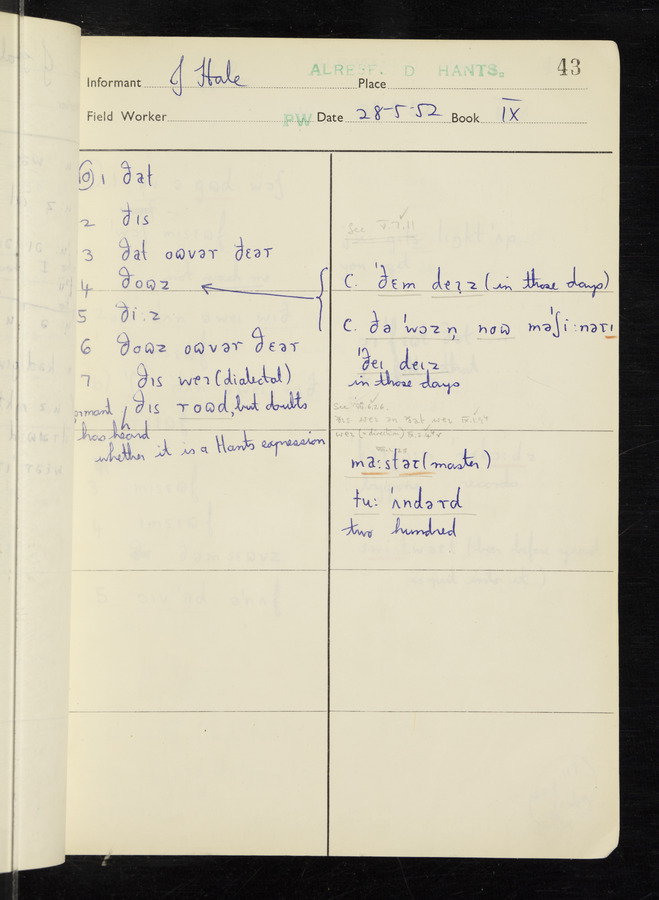 Informant J Hale Place ALRESF. D HANTS. 43
Field Worker PW Date 28-5-52 Book IX
10 1 ðat
2 ðɪs
3 ðat oʊvər ðɛər
4 ðoʊz
5 ði:z
6 ðoʊz oʊvər ðɛər
7 ðɪs weɪ (dialectal)
ormant ðɪs roʊd, but doubts
has heard
whether it is a Hants expression
See V.7.11
C. ˈðɛm deɪz (in those days)
C. ðə ˈwɔzn̩ noʊ məˈʃi:nərɪ
ˈðeɪ deɪz
in those days
ma:stər (master)
tu: ˈʌndərd
two hundred